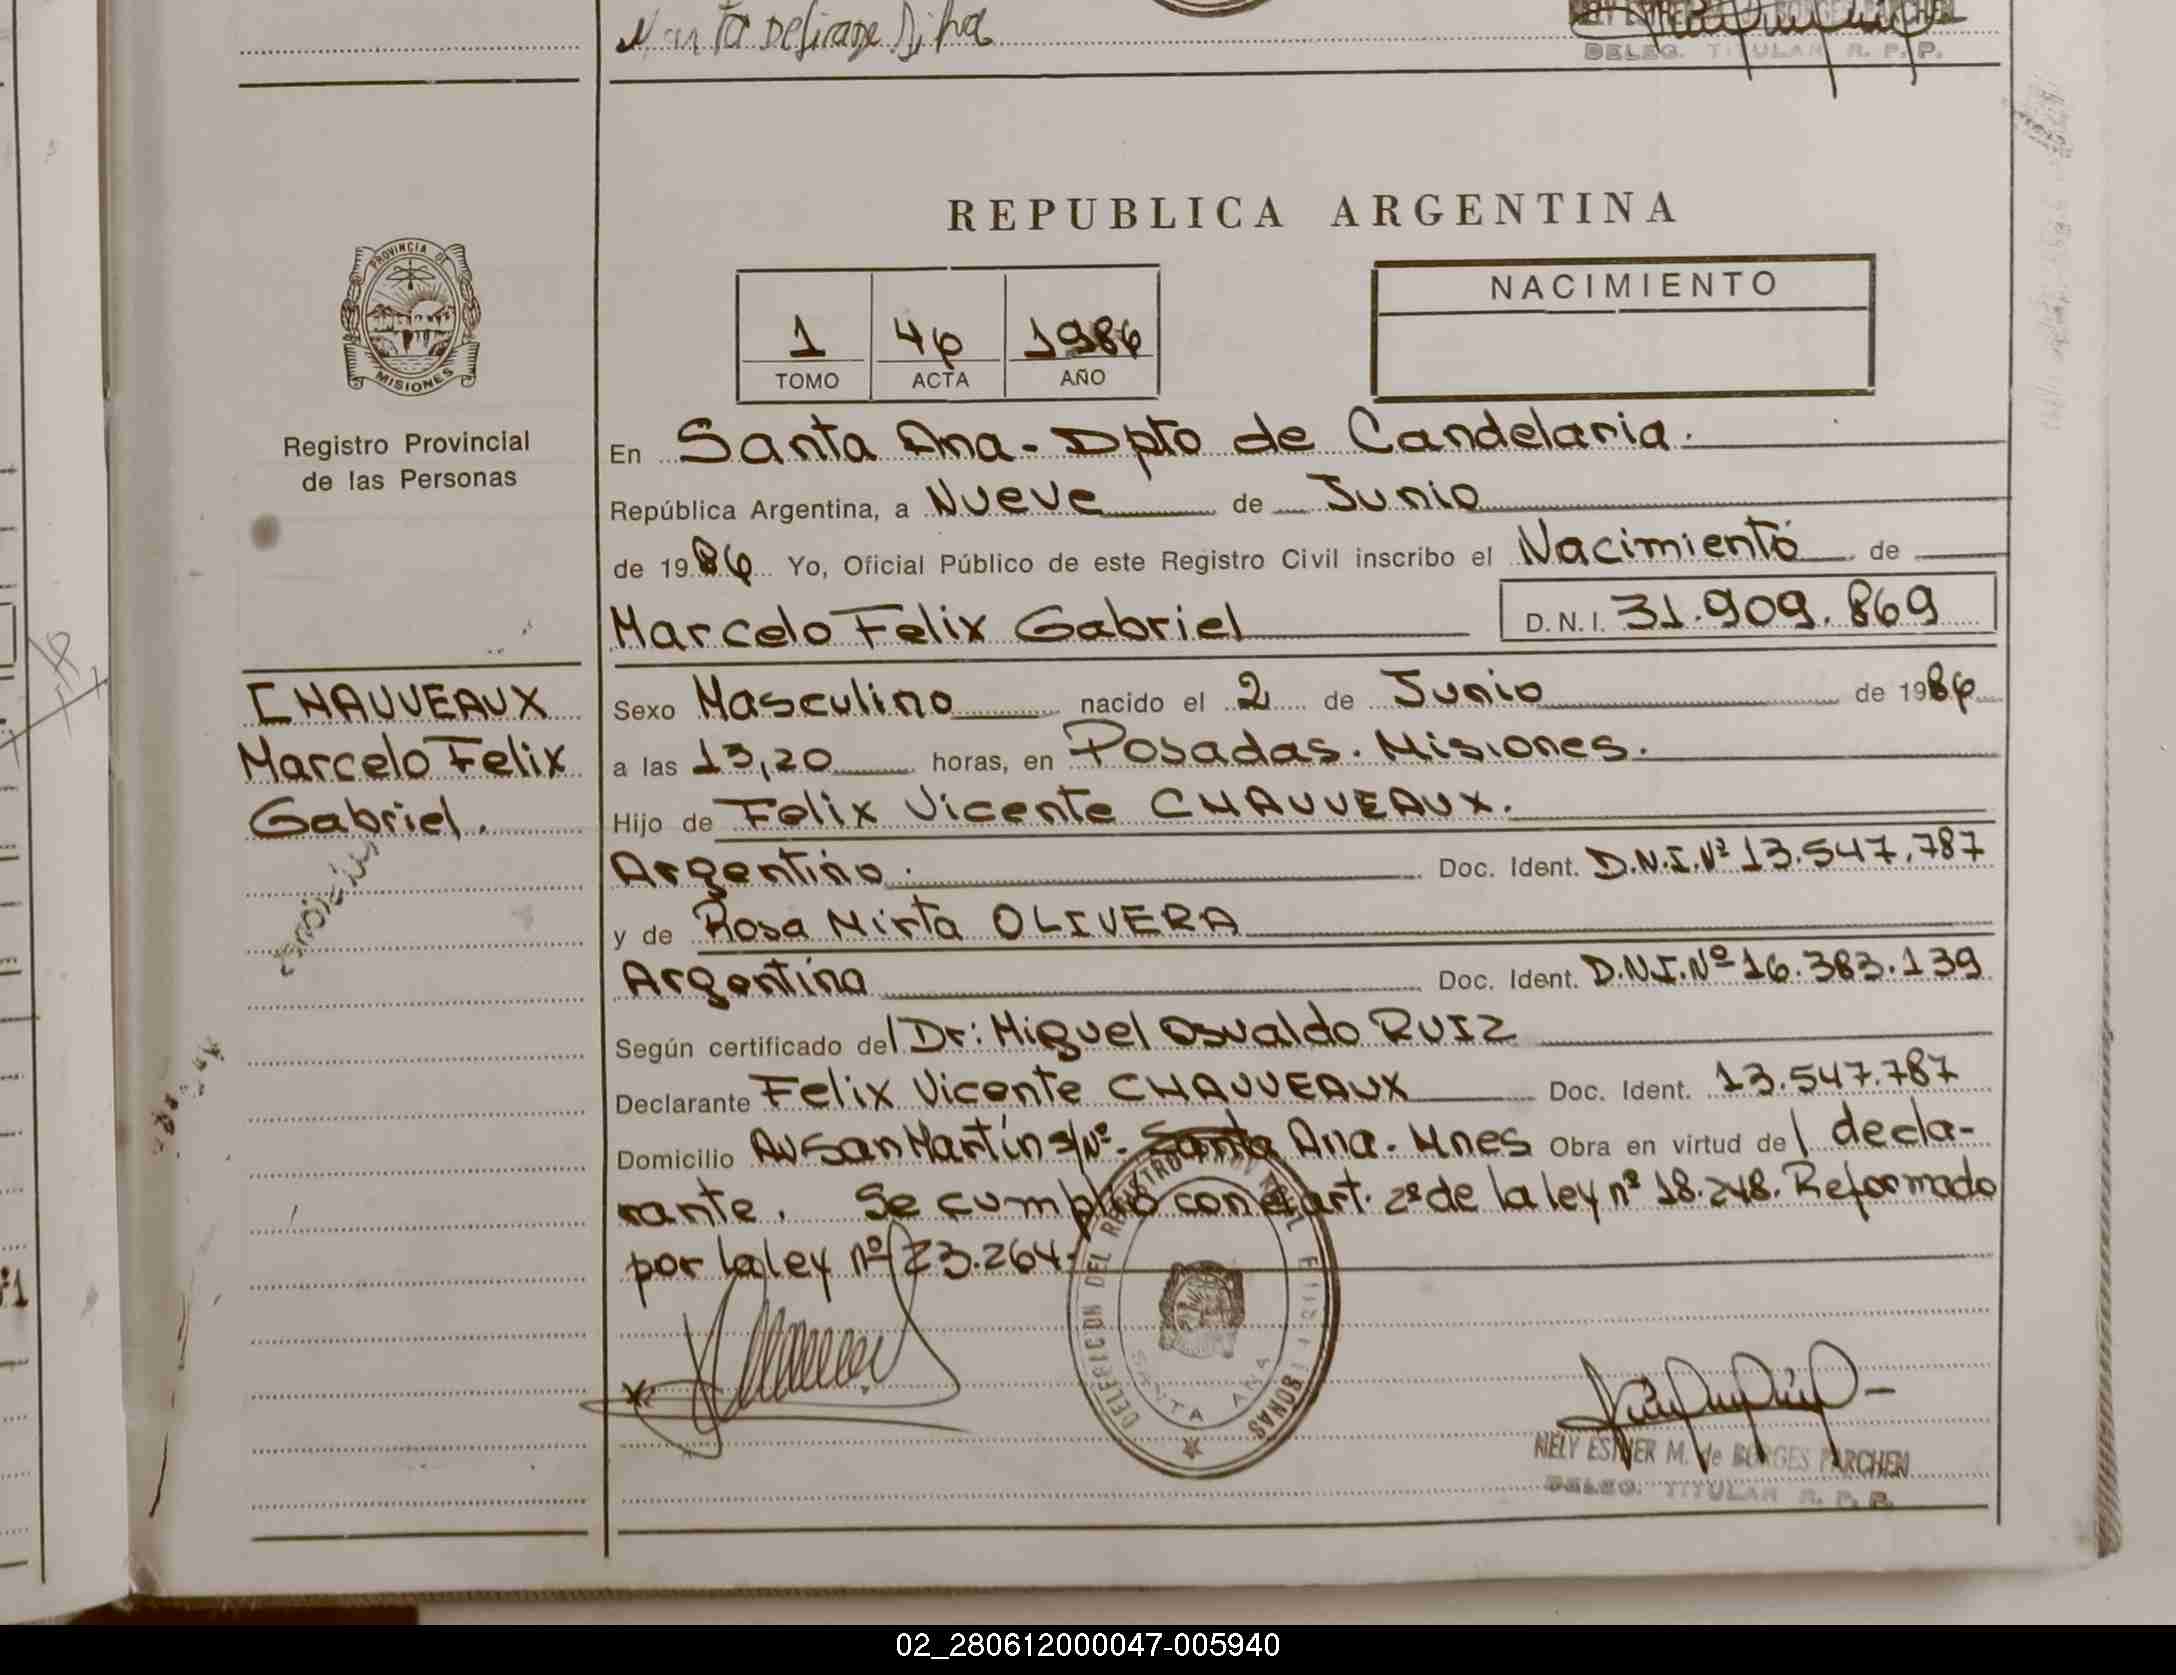 DELEG. TITULAR R. P. P.
REPUBLICA ARGENTINA
PROVINCIA DE
MISIONES
Registro Provincial
de las Personas
1 46 1986
TOMO ACTA AÑO
NACIMIENTO
En Santa Ana - Dpto de Candelaria.
República Argentina, a Nueve de Junio
de 1986 Yo, Oficial Público de este Registro Civil inscribo el Nacimiento de
Marcelo Felix Gabriel D.N.I. 31.909.869
CHAUVEAUX
Marcelo Felix
Gabriel.
Sexo Masculino nacido el 2 de Junio de 1986
a las 13,20 horas, en Posadas. Misiones.
Hijo de Felix Vicente CHAUVEAUX.
Argentino. Doc. Ident. D.N.I.Nº 13.547.787
y de Rosa Mirta OLIVERA
Argentina Doc. Ident. D.N.I.Nº 16.383.139
Según certificado del Dr: Miguel Osvaldo RUIZ
Declarante Felix Vicente CHAUVEAUX Doc. Ident. 13.547.787
Domicilio Av San Martín s/Nº. Santa Ana. Mnes Obra en virtud del decla-
rante. Se cumplió con el art. 2º de la ley nº 18.248. Reformado
por la ley nº 23.264.
DELEGACION DEL REGISTRO PROVINCIAL
SANTA ANA
NELY ESTHER M. de BORGES PARCHEN
DELEG. TITULAR R. P. P.
02_280612000047-005940